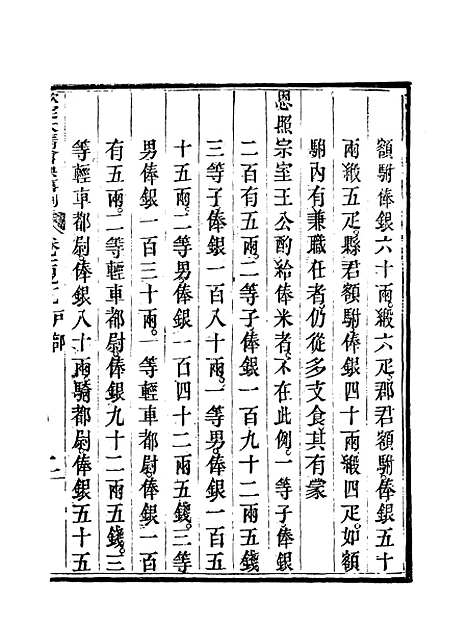 額駙俸銀六十兩緞六疋郡君額駙俸銀五十
兩緞五疋縣君額駙俸銀四十兩緞四疋如額
駙內有兼職任者仍從多支食其有蒙
恩照宗室王公酌給俸米者不在此例一等子俸銀
二百有五兩二等子俸銀一百九十二兩五錢
三等子俸銀一百八十兩一等男俸銀一百五
十五兩二等男俸銀一百四十二兩五錢三等
男俸銀一百三十兩一等輕車都尉俸銀一百
有五兩二等輕車都尉俸銀九十二兩五錢三
等輕車都尉俸銀八十兩騎都尉俸銀五十五
戶部